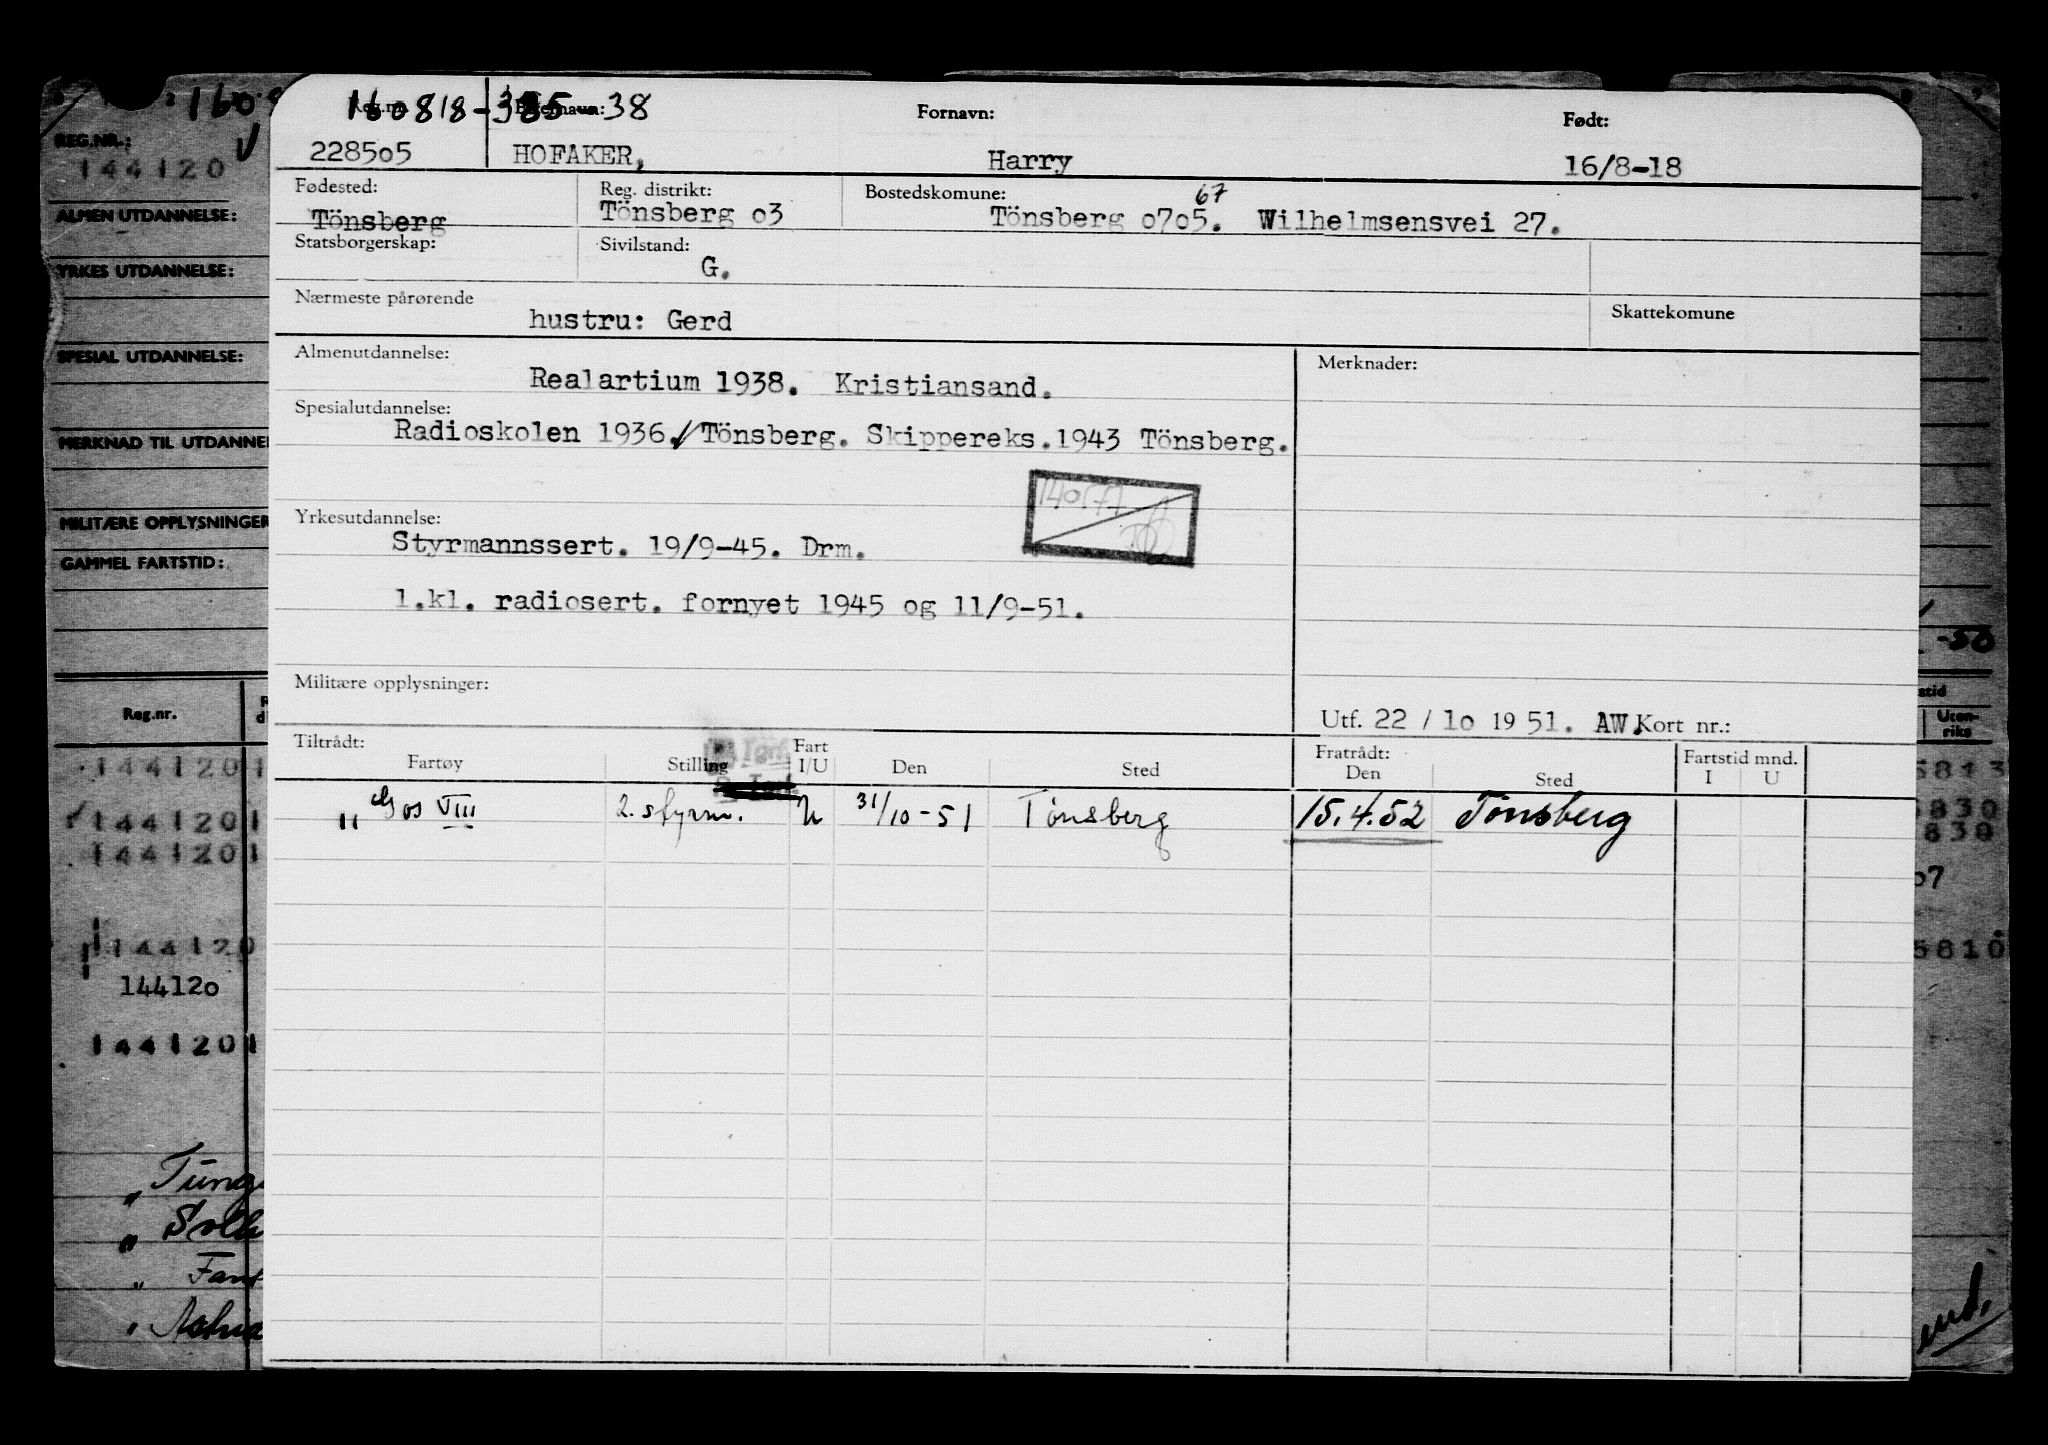 160818-385-38
Reg.nr. Etternavn: Fornavn: Født:
2285o5 HOFAKER, Harry 16/8-18
Fødested: Reg. distrikt: Bostedskomune: 67
Tönsberg Tönsberg o3 Tönsberg o7o5. Wilhelmsensvei 27.
Statsborgerskap: Sivilstand:
G.
Nærmeste pårørende Skattekomune
hustru: Gerd
Almenutdannelse: Merknader:
Realartium 1938. Kristiansand.
Spesialutdannelse:
Radioskolen 1936./Tönsberg. Skippereks.1943 Tönsberg.
Yrkesutdannelse:
Styrmannssert. 19/9-45. Drm.
1.kl. radiosert. fornyet 1945 og 11/9-51.
Militære opplysninger:
Utf. 22 / 1o 19 51. AW. Kort nr.:
Tiltrådt: Fart Fratrådt: Fartstid mnd.
Fartøy Stilling I/U Den Sted Den Sted I U
" Gos VIII 2. styrm. U 31/10-51 Tönsberg 15.4.52 Tönsberg
REG.NR.:
144120
ALMEN UTDANNELSE:
YRKES UTDANNELSE:
SPESIAL UTDANNELSE:
MERKNAD TIL UTDANNE
MILITÆRE OPPLYSNINGER
GAMMEL FARTSTID:
Reg.nr.
1441201
1441201
1441201
144120
14412o
1441201
-50
stid
Uten-
riks
5813
5830
830
o7
5810